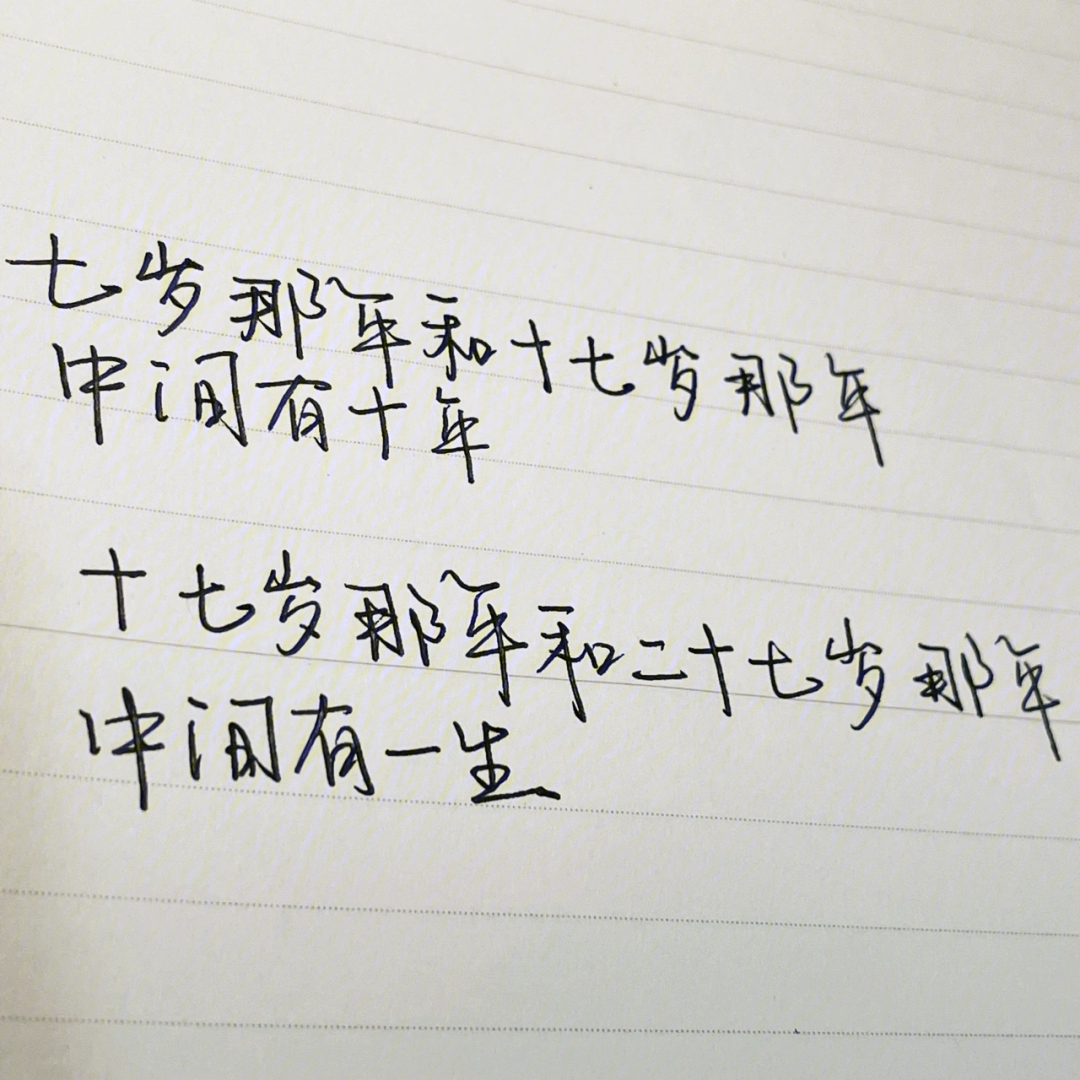 七岁那年和十七岁那年
中间有十年
十七岁那年和二十七岁那年
中间有一生